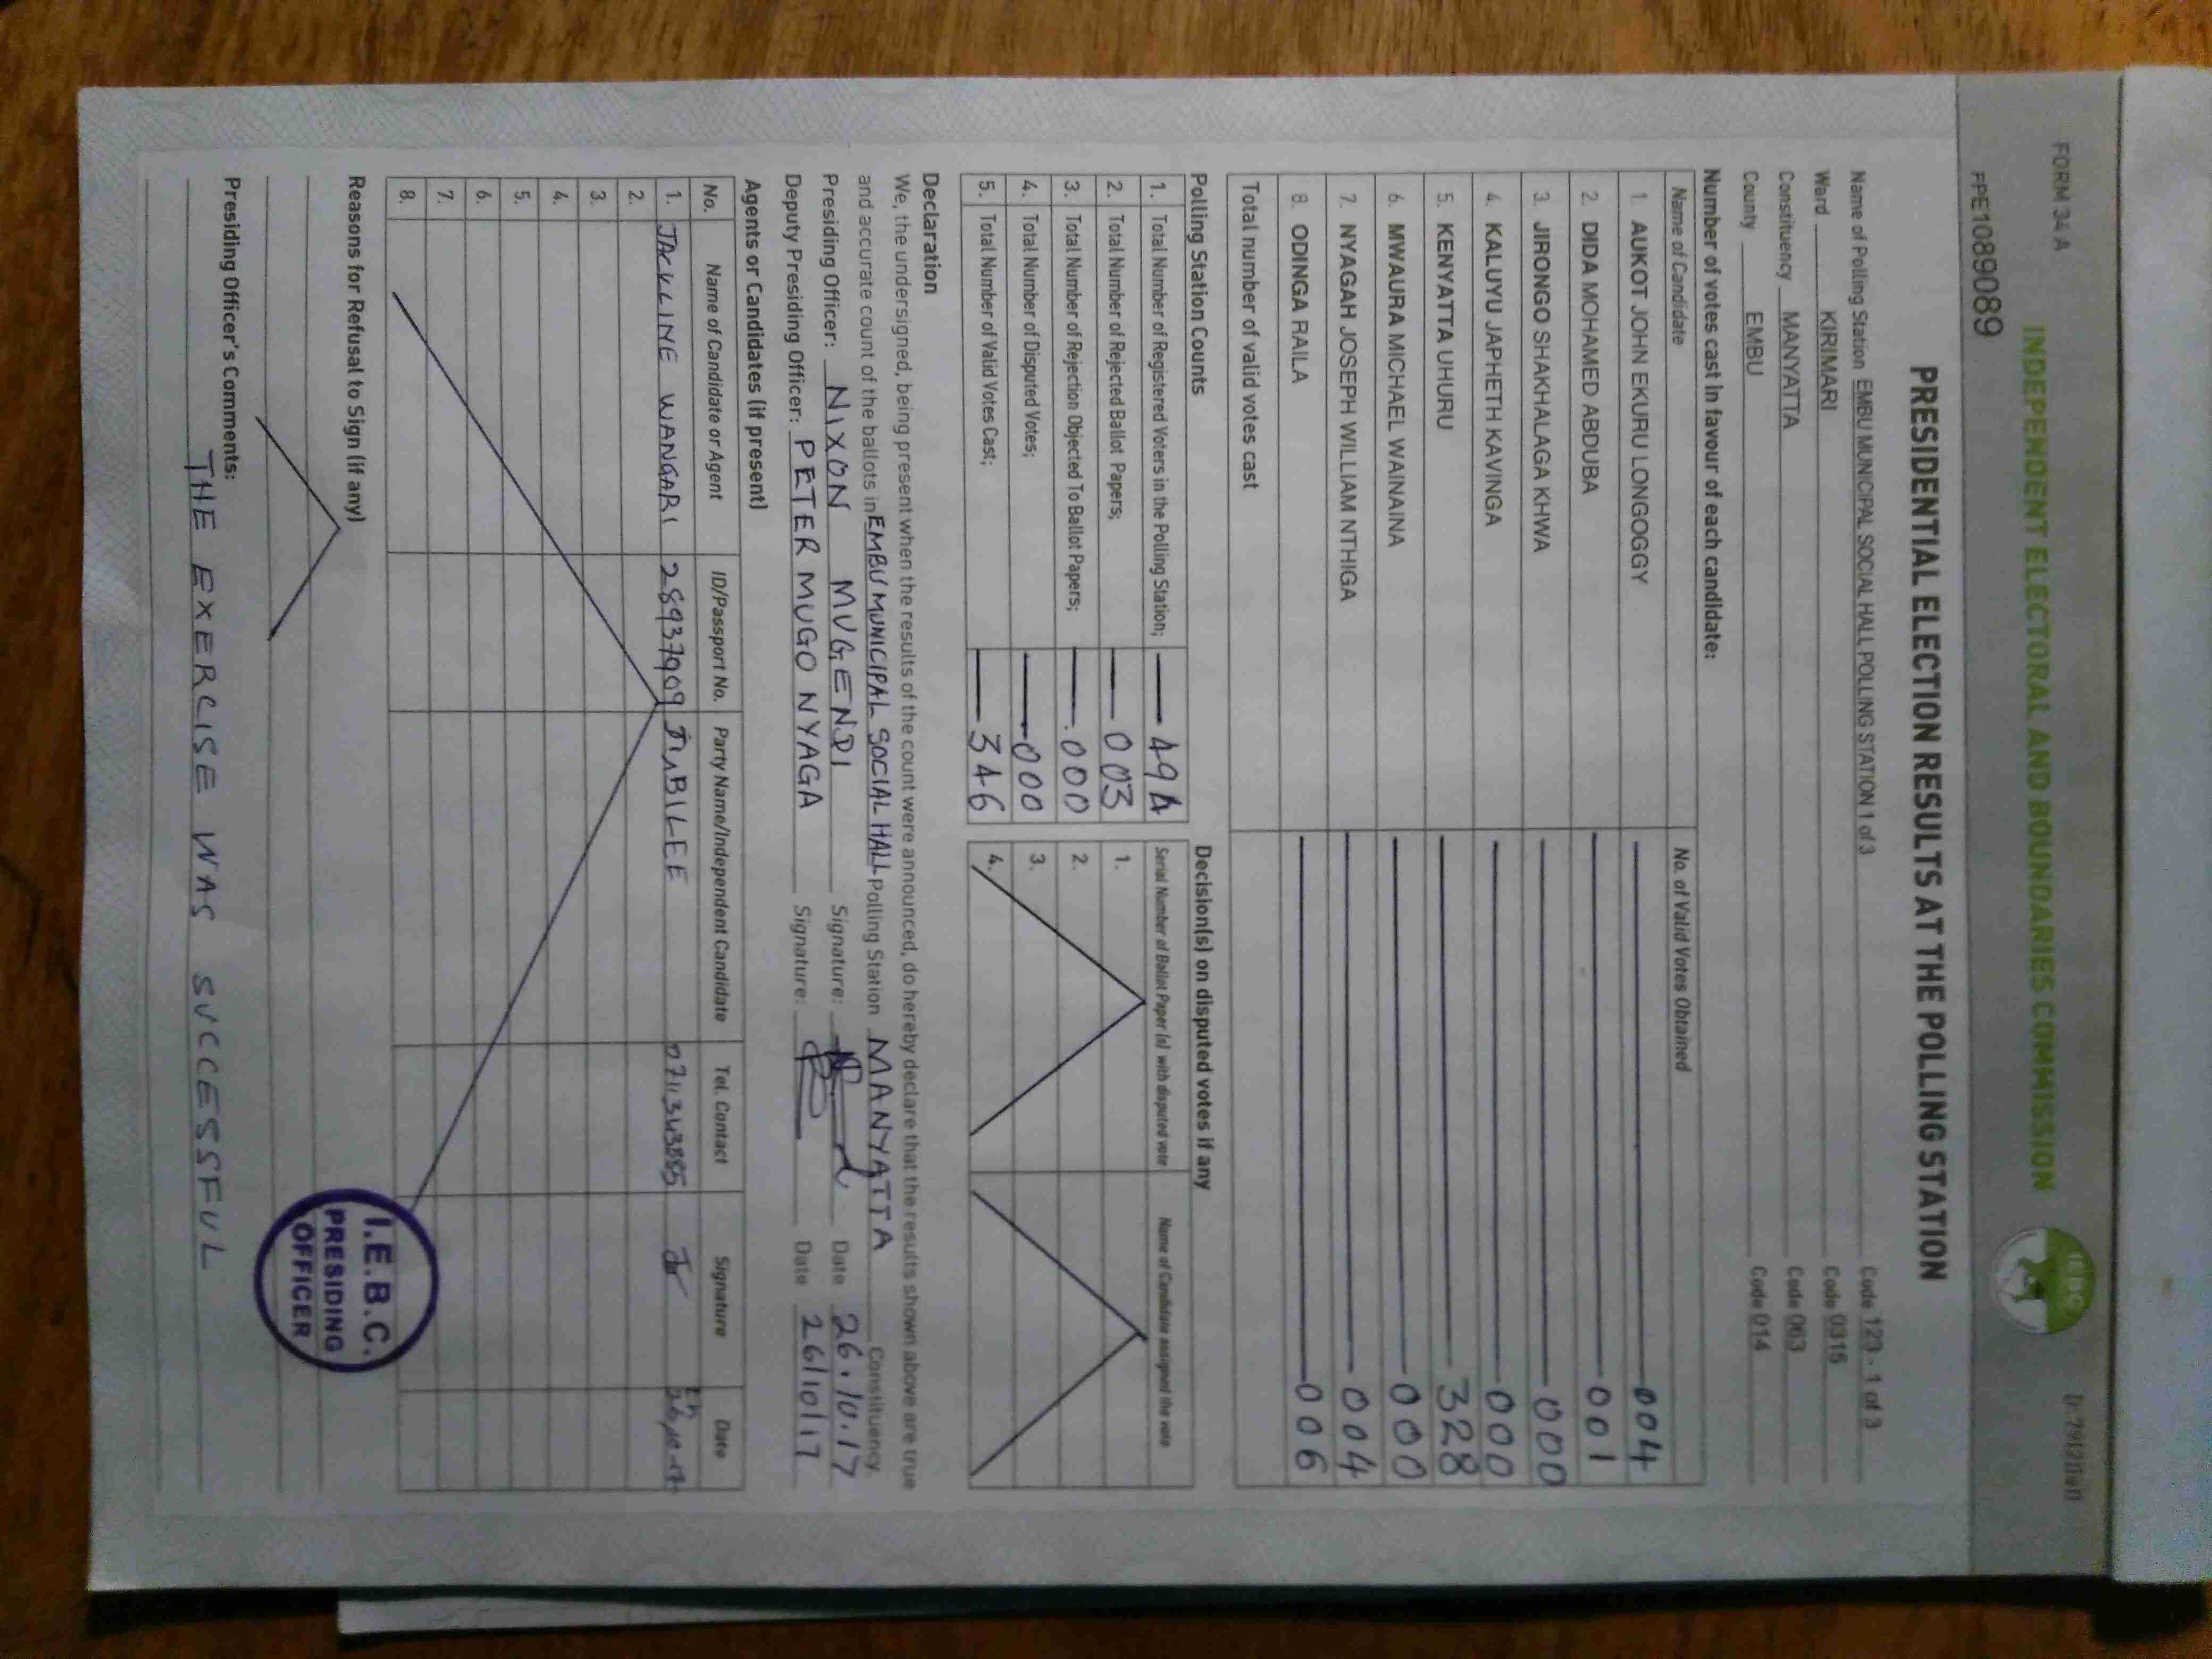 FORM 34 A
INDEPENDENT ELECTORAL AND BOUNDARIES COMMISSION
IEBC
FPE1089089
PRESIDENTIAL ELECTION RESULTS AT THE POLLING STATION
Name of Polling Station EMBU MUNICIPAL SOCIAL HALL POLLING STATION 1 of 3 Code 123 - 1 of 3
Ward KIRIMARI Code 0315
Constituency MANYATTA Code 063
County EMBU Code 014
Number of votes cast in favour of each candidate:
Name of Candidate No. of Valid Votes Obtained
1. AUKOT JOHN EKURU LONGOGGY 004
2. DIDA MOHAMED ABDUBA 001
3. JIRONGO SHAKHALAGA KHWA 000
4. KALUYU JAPHETH KAVINGA 000
5. KENYATTA UHURU 328
6. MWAURA MICHAEL WAINAINA 000
7. NYAGAH JOSEPH WILLIAM NTHIGA 004
8. ODINGA RAILA 006
Total number of valid votes cast
Polling Station Counts Decision(s) on disputed votes if any
Serial Number of Ballot Paper (s) with disputed vote Name of Candidate assigned the vote
1. Total Number of Registered Voters in the Polling Station; 494
2. Total Number of Rejected Ballot Papers; 003 1.
3. Total Number of Rejection Objected To Ballot Papers; 000 2.
4. Total Number of Disputed Votes; 000 3.
5. Total Number of Valid Votes Cast; 346 4.
Declaration
We, the undersigned, being present when the results of the count were announced, do hereby declare that the results shown above are true
and accurate count of the ballots in EMBU MUNICIPAL SOCIAL HALL Polling Station MANYATTA Constituency
Presiding Officer: NIXON MUGENDI Signature: Date 26.10.17
Deputy Presiding Officer: PETER MUGO NYAGA Signature: Date 26/10/17
Agents or Candidates (if present)
No. Name of Candidate or Agent ID/Passport No. Party Name/Independent Candidate Tel. Contact Signature Date
1. JACKLINE WANGARI 28937909 JUBILEE
2.
3.
4.
5.
6.
7.
8.
Reasons for Refusal to Sign (if any)
I.E.B.C.
PRESIDING
OFFICER
Presiding Officer's Comments:
THE EXERCISE WAS SUCCESSFUL